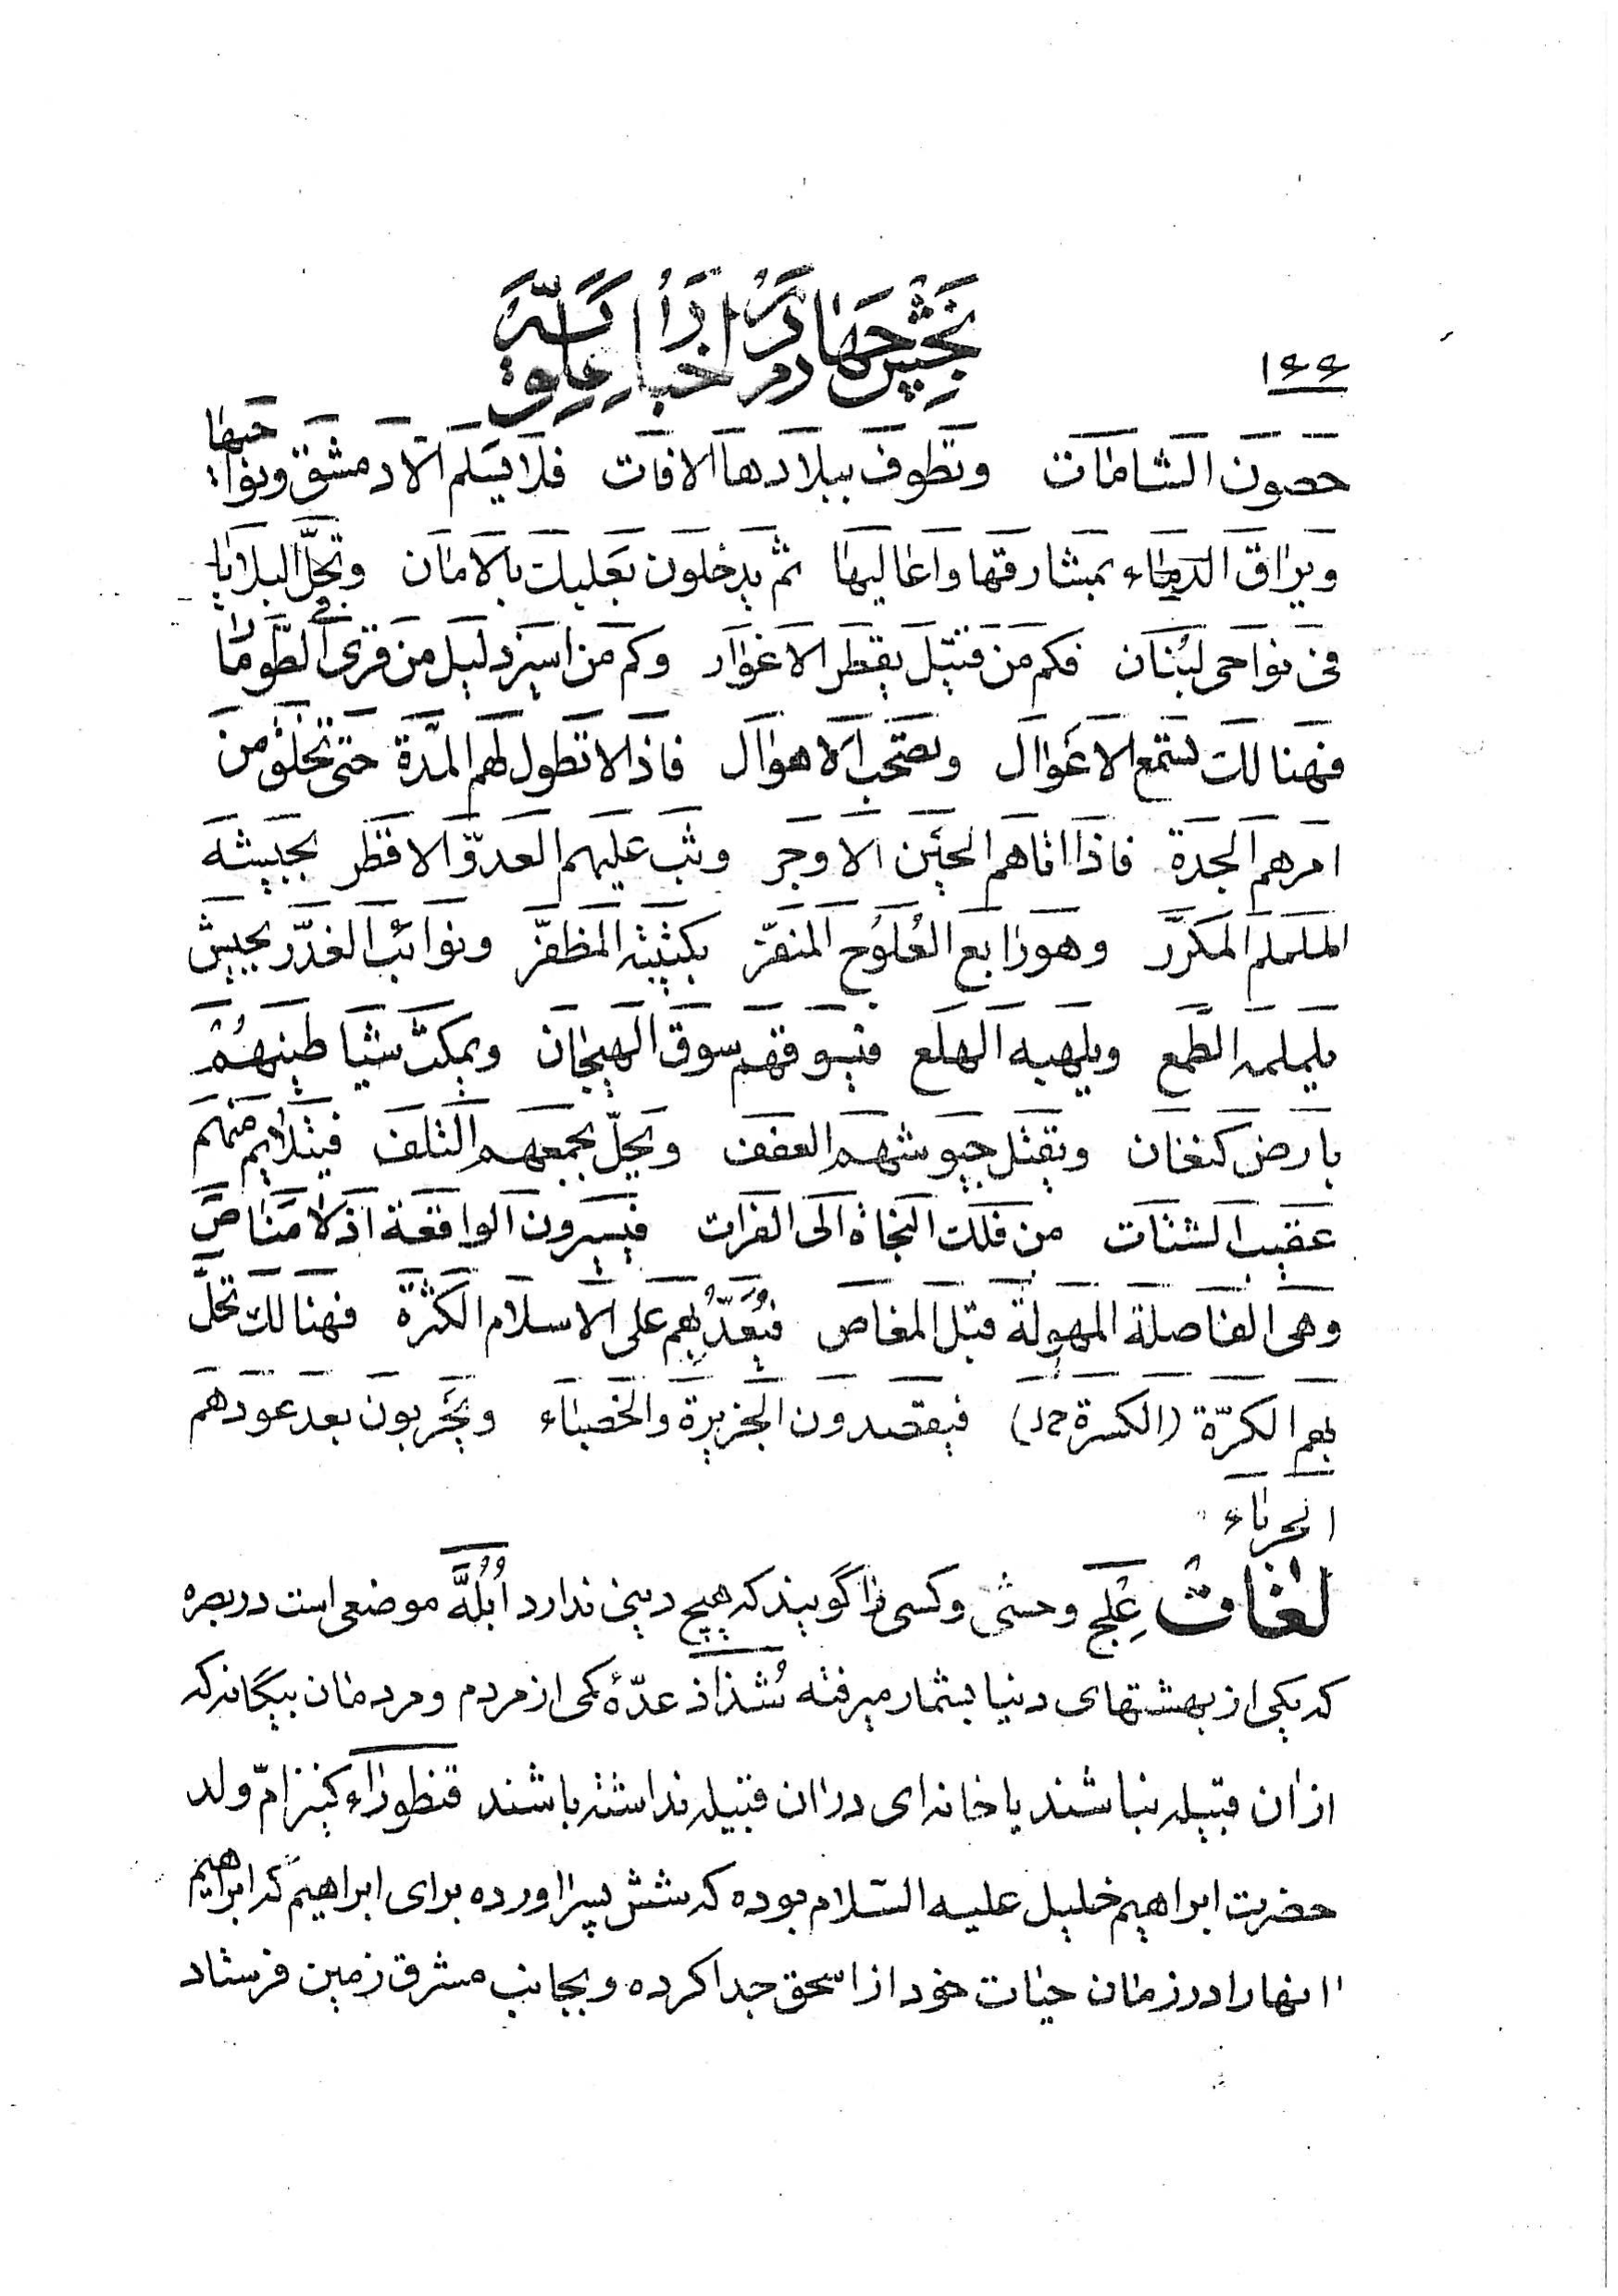 ۱۴۴
بخش چهارم در اخبار علویّه
حصون الشامات وتطوف ببلادها الافات فلا یسلم الّا دمشق ونواحیها
ویراق الدماء بمشارقها واعالیها ثم یدخلون بعلبک بالامان وتحلّ البلایا
فی نواحی لبنان فکم من قتیل بقطر الاغوار وکم من اسیر ذلیل من قری الطومار
فهنالک تسمع الاعوال وتصحب الاهوال فاذا لا تطول لهم المدّة حتی تخلق من
امرهم الجدة فاذا اتاهم الحین الاوجر وثب علیهم العدوّ الاقطر بجیشه
الململم المکرّر وهو رابع العُلُوج المنقر بکتیبة المظفّر ونوائب الغدّر بجیش
یلملمه الطمع ویلهبه الهلع فیسوقهم سوق الهیجان ویمکث شیاطینهُم
بارض کنعان ویقتل جیوشهم العفف ویحلّ بجمعهم التلف فیتلایم منهم
عقیب الشتات من فلک النجاة الی الفرات فیسیرون الواقعة اذ لا مناصّ
وهی الفاصلة المهولة قبل المغاص فیُعَدُّ بهم علی الاسلام الکثرة فهنالک تحلّ
بهم الکرّة (الکسرة خل) فیقصدون الجزیرة والخصباء ویخربون بعد عودهم
الحرباء
لغات عِلج وحشی وکسی را گویند که هیچ دینی ندارد اُبُلَّه موضعی است در بصره
که یکی از بهشتهای دنیا بشمار میرفته شُذاذ عدّهٔ کمی از مردم ومردمان بیگانه که
از ان قبیله نباشند یا خانه‌ای در ان قبیله نداشته باشند قنطوراء کنیز امّ ولد
حضرت ابراهیم خلیل علیه السّلام بوده که شش پسر اورده برای ابراهیم که ابراهیم
انها را در زمان حیات خود از اسحق جدا کرده وبجانب مشرق زمین فرستاد